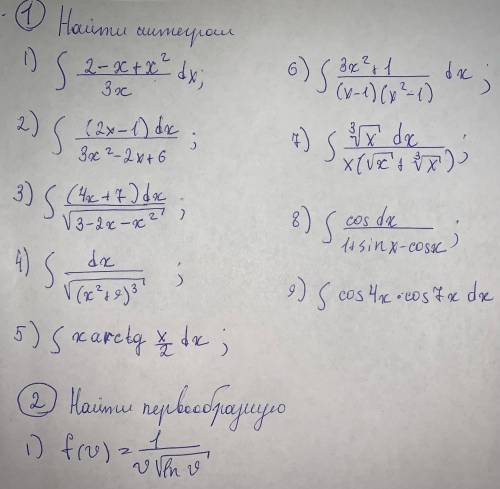 ① Найти интеграл
1) ∫ (2-x+x²)/(3x) dx;
2) ∫ ((2x-1)dx)/(3x²-2x+6) ;
3) ∫ ((4x+7)dx)/√(3-2x-x²) ;
4) ∫ dx/√((x²+9)³) ;
5) ∫ x arctg x/2 dx ;
6) ∫ (3x²+1)/((x-1)(x²-1)) dx ;
7) ∫ (∛x dx)/(x(√x+∛x)) ;
8) ∫ (cos dx)/(1+sin x-cosx) ;
9) ∫ cos4x·cos7x dx
② Найти первообразную
1) f(v) = 1/(v√(ln v))